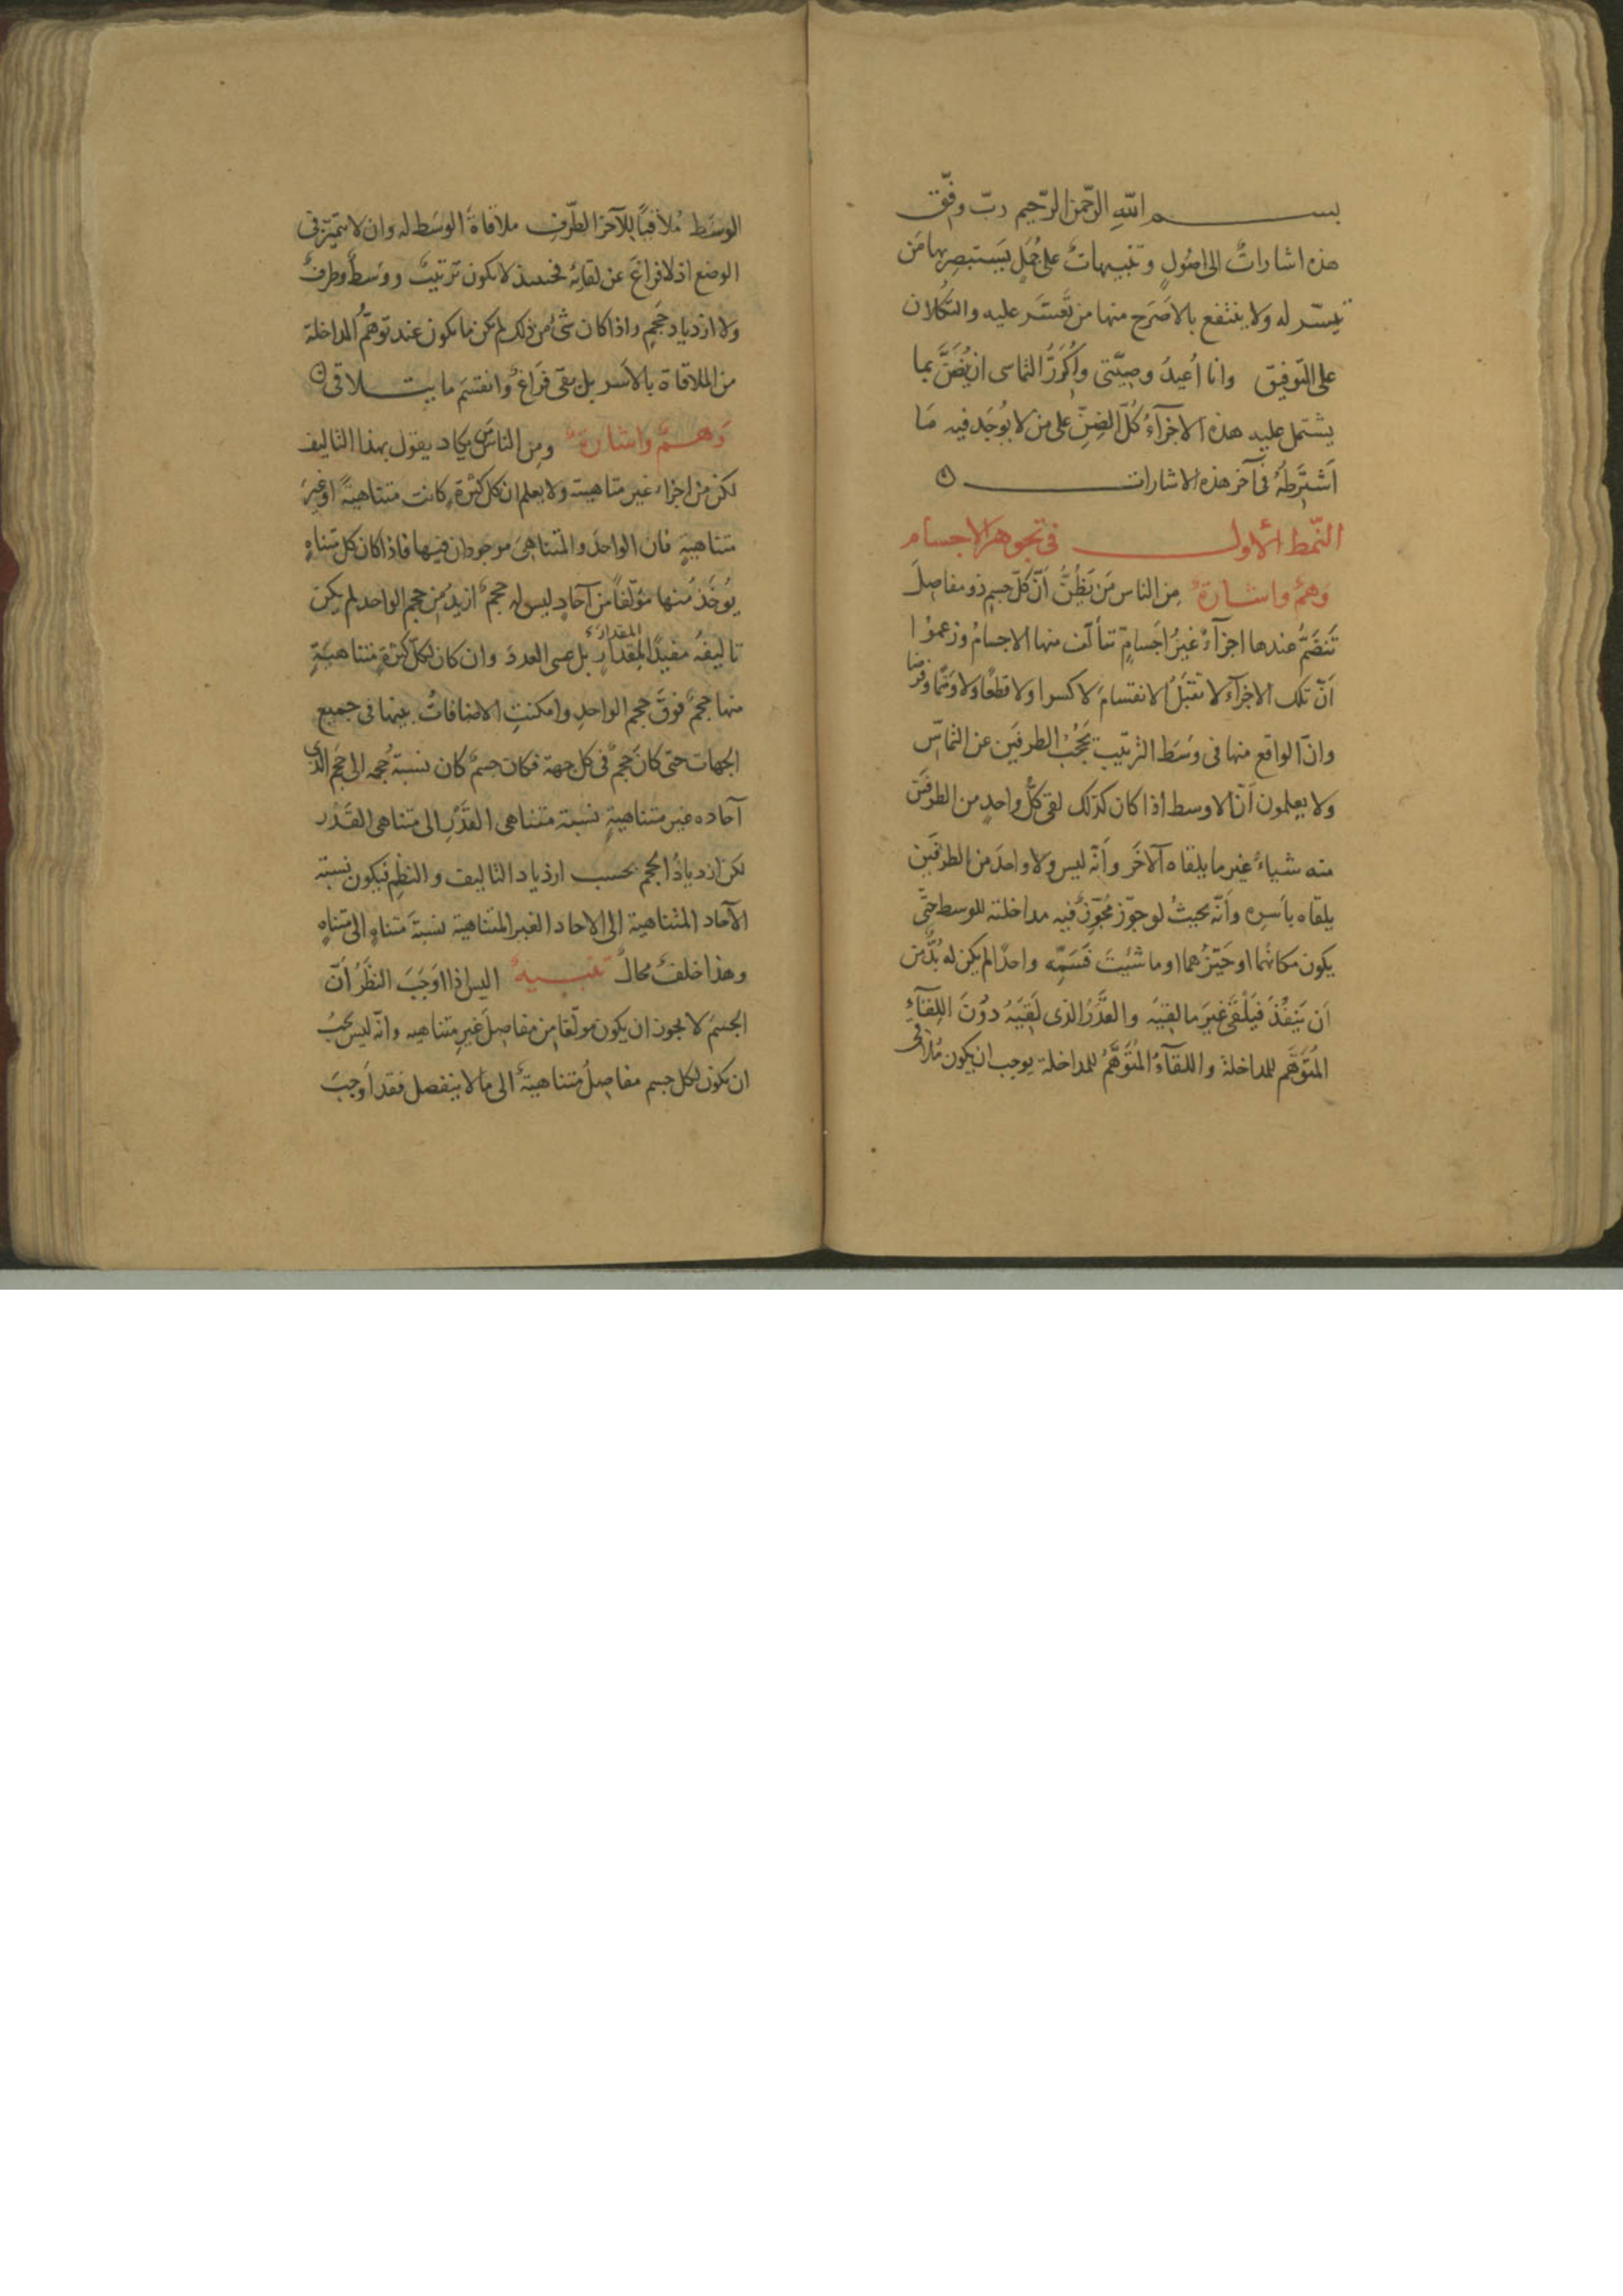 بسم الله الرحمن الرحيم رب وفق
هذه اشاراتٌ الى اصُولٍ و تنبيهاتٌ على جُمَلٍ يَستبصِر بها مَن
تيسّر له ولا ينتفع بالاصَرح منها من تَعسَّر عليه والتُكلان
على التوفيق وانا اُعيدُ وصيّتى واُكرّرُ التماسى ان يُضَنَّ بما
يشتمل عليه هذه الاجزآءُ كُلّ الضِنِّ على من لا يُوجَد فيه مَا
اَشترِطهُ فى آخر هذه الاشارات
النّمط الاول فى تجوهر الاجسام
وَهمٌ واشارةٌ مِن الناس مَن يَظُنُّ اَنّ كلّ جسمٍ ذو مفاصِلَ
تَنضَمُّ عندها اجزآءٌ غيرُ اَجسامٍ تتألّف منها الاجسامُ وزعموُا
اَنّ تلك الاجزآء لا تقبَلُ الانقسامَ لا كسرا ولا قطعًا ولا وَهمًا وفرضا
وانّ الواقع منها فى وسَط الترتيب يَحجُبُ الطرفَين عن التماسّ
ولا يعلمون اَنّ الاوسط اذا كان كذلك لقى كلُّ واحدٍ من الطرفَين
منه شياءً غير ما يلقاه الآخَر واَنّه ليس ولا واحدَ من الطرفَين
يلقاه باَسرِه واَنّه بحيثُ لو جوّز مُجَوِّزٌ فيه مداخلته للوسط حتّى
يكون مكانهُما او حَيّزُهما او ما شئِتَ فَسَمِّه واحدًا لم يكن له بُدٌّ من
اَن يَنفُذَ فيَلْقَى غيرَ ما لقيَه والقَدْرُ الذى لَقِيَهُ دوُنَ اللِقآءِ
المُتوَهَّم للمداخلة واللقآءُ المُتَوَهَّمُ للمداخلة يوجب ان يكون مُلاقى
الوسَط مُلاقيًا للآخر الطَّرفِ ملاقاةَ الوسَط له وان لا يتميّز فى
الوضع اذ لا فراغَ عن لقآئه فحينئذ لا يكون ترتيبٌ ووسَطٌ وطرفٌ
ولا ازدياد حَجمٍ واذا كان شئ من ذلك لم يكن ما يكون عند توهّم المداخلة
من الملاقاة بالاَسر بل بقى فراغٌ وانقسَم ما يتلاقى
وَهمٌ واشارةٌ ومِن الناس مَن يكاد يقول بهذا التاليف
لكن من اجزاء غير متناهية ولا يعلم ان كل كثرةٍ كانت متناهيةً او غيرَ
متناهيةٍ فان الواحدَ والمتناهىَ موجودان فيها فاذا كان كل متناهٍ
يُوخَذ منها مؤلّفًا من آحادٍ ليس له حجمٌ ازيدُ من حجم الواحد لم يكن
تاليفهُ مفيدًا لمِقدارٍ بل عسى العددَ وان كان لكلّ كثرةٍ متناهيةٍ
المقدارَ
منها حجمٌ فوقَ حجم الواحدِ وامكنتِ الاضافاتُ بينها فى جميع
الجهات حتى كان حجمٌ فى كل جهة فكان جسمٌ كان نسبةُ حَجمه الى حَجم الذى
آحاده غير متناهيةٍ نسبة متناهى القَدْرِ الى متناهى القَدْر
لكن ازديادُ الحجم بحسب ازدياد التاليف والنظمِ فيكون نسبة
الآحاد المتناهية الى الاحاد الغير المتناهية نسبةَ متناهٍ الى متناهٍ
وهذا خلفٌ محالٌ تنبيهٌ اليس اذا اَوجَبَ النظَرُ اَنّ
الجسمَ لا يجوز ان يكون مولّفًا من مفاصِلَ غيرِ متناهيه وانّه ليس يجبُ
ان يكون لكل جسم مفاصِلُ متناهيةٌ الى ما لا ينفصل فقد اَوجبَ